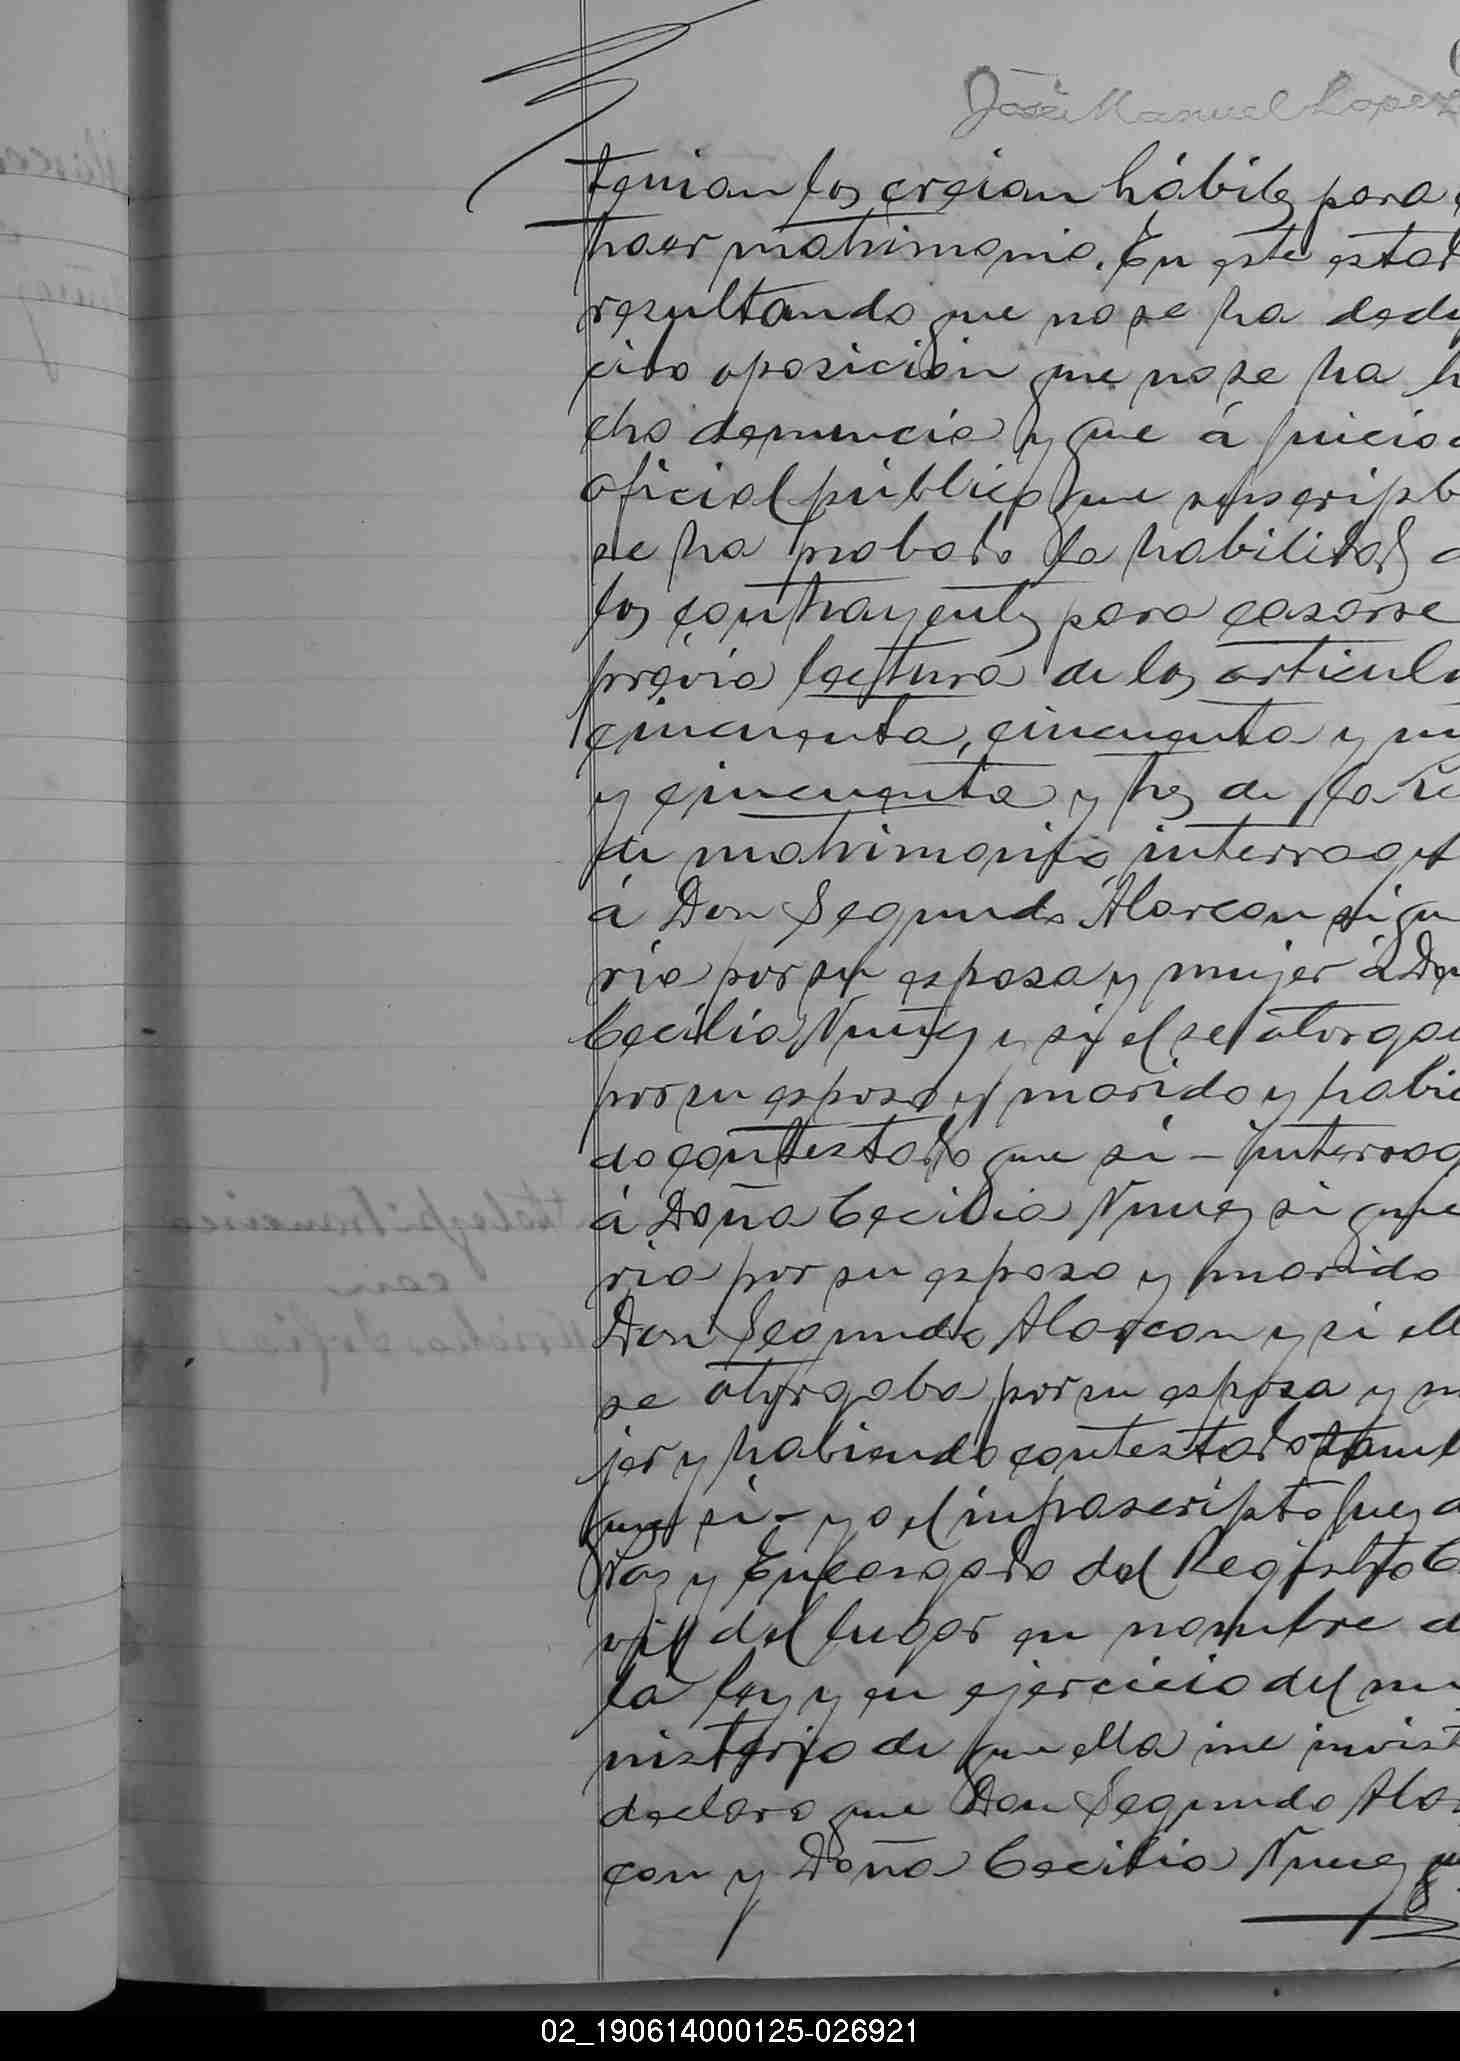 José Manuel Lopez
tenian los creian hábiles para
traer matrimonio. En este estad
resultando que no se ha dedu
cido oposicion que no se ha h
cho denuncia y que á juicio
oficial público que suscripb
se ha probado la habilidad d
los contrayentes para casarse
prévia lectura de los articul
cincuenta, cincuenta y un
y cincuenta y tres de la le
de matrimonio, interrogue
á Don Segundo Alarcon si que
ria por su esposa y mujer á Doñ
Cecilia Nuñez y si el se otorga
por su esposo y marido y habie
do contestado que si - interrog
á Doña Cecilia Nuñez si que
ria por su esposo y marido
Don Segundo Alarcon y si ell
se otorgaba por su esposa y m
jer y habiendo contestado tamb
que si - yo el infrascripto Juez d
Paz y Encargado del Registro C
vil del lugar en nombre d
la ley y en ejercicio del mi
nisterio de que ella me invist
declaro que Don Segundo Alar
con y Doña Cecilia Nuñez
02_190614000125-026921